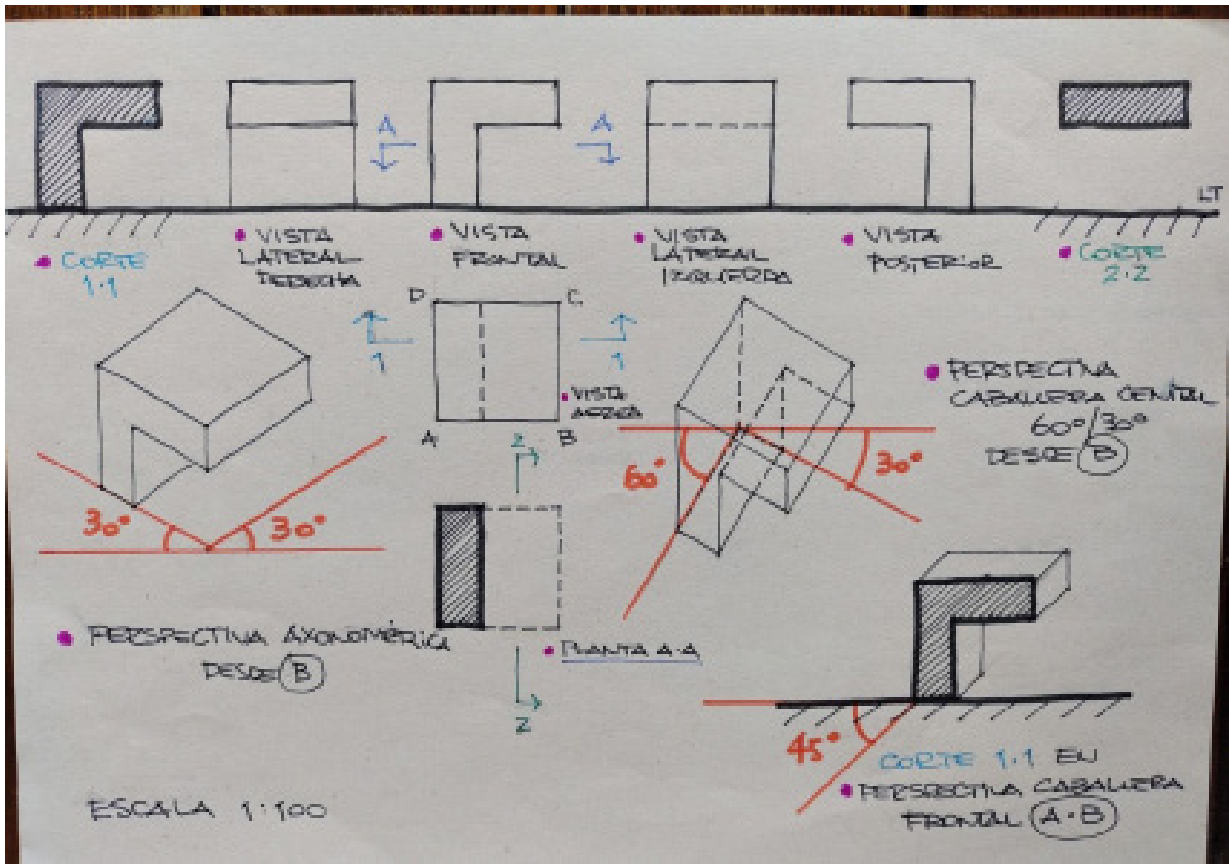 A
A
LT
CORTE
1·1
VISTA
LATERAL
DERECHA
VISTA
FRONTAL
VISTA
LATERAL
IZQUIERDA
VISTA
POSTERIOR
CORTE
2·2
D
C
1
1
VISTA
AEREA
A
B
30°
30°
PERSPECTIVA AXONOMÉTRICA
DESDE B
2
PLANTA A-A
2
60°
30°
PERSPECTIVA
CABALLERA CENITAL
60°/30°
DESDE B
45°
CORTE 1·1 EN
PERSPECTIVA CABALLERA
FRONTAL A·B
ESCALA 1:100